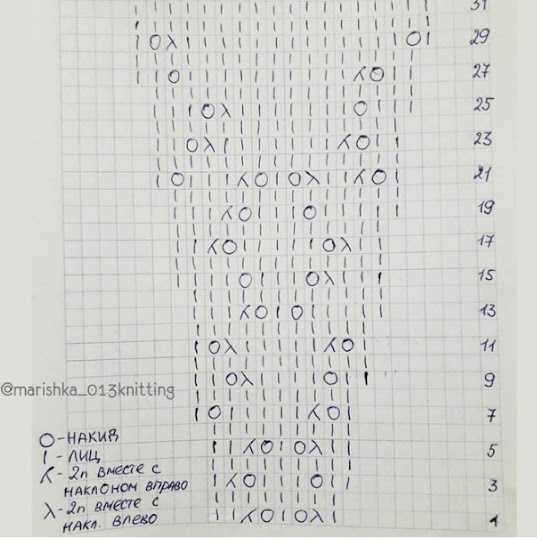 31
29
27
25
23
21
19
17
15
13
11
9
@marishka_013knitting
7
O-НАКИД
I - ЛИЦ
5
⼃ - 2п ВМЕСТЕ С
НАКЛОНОМ ВПРАВО
3
λ - 2п ВМЕСТЕ С
НАКЛ. ВЛЕВО
1